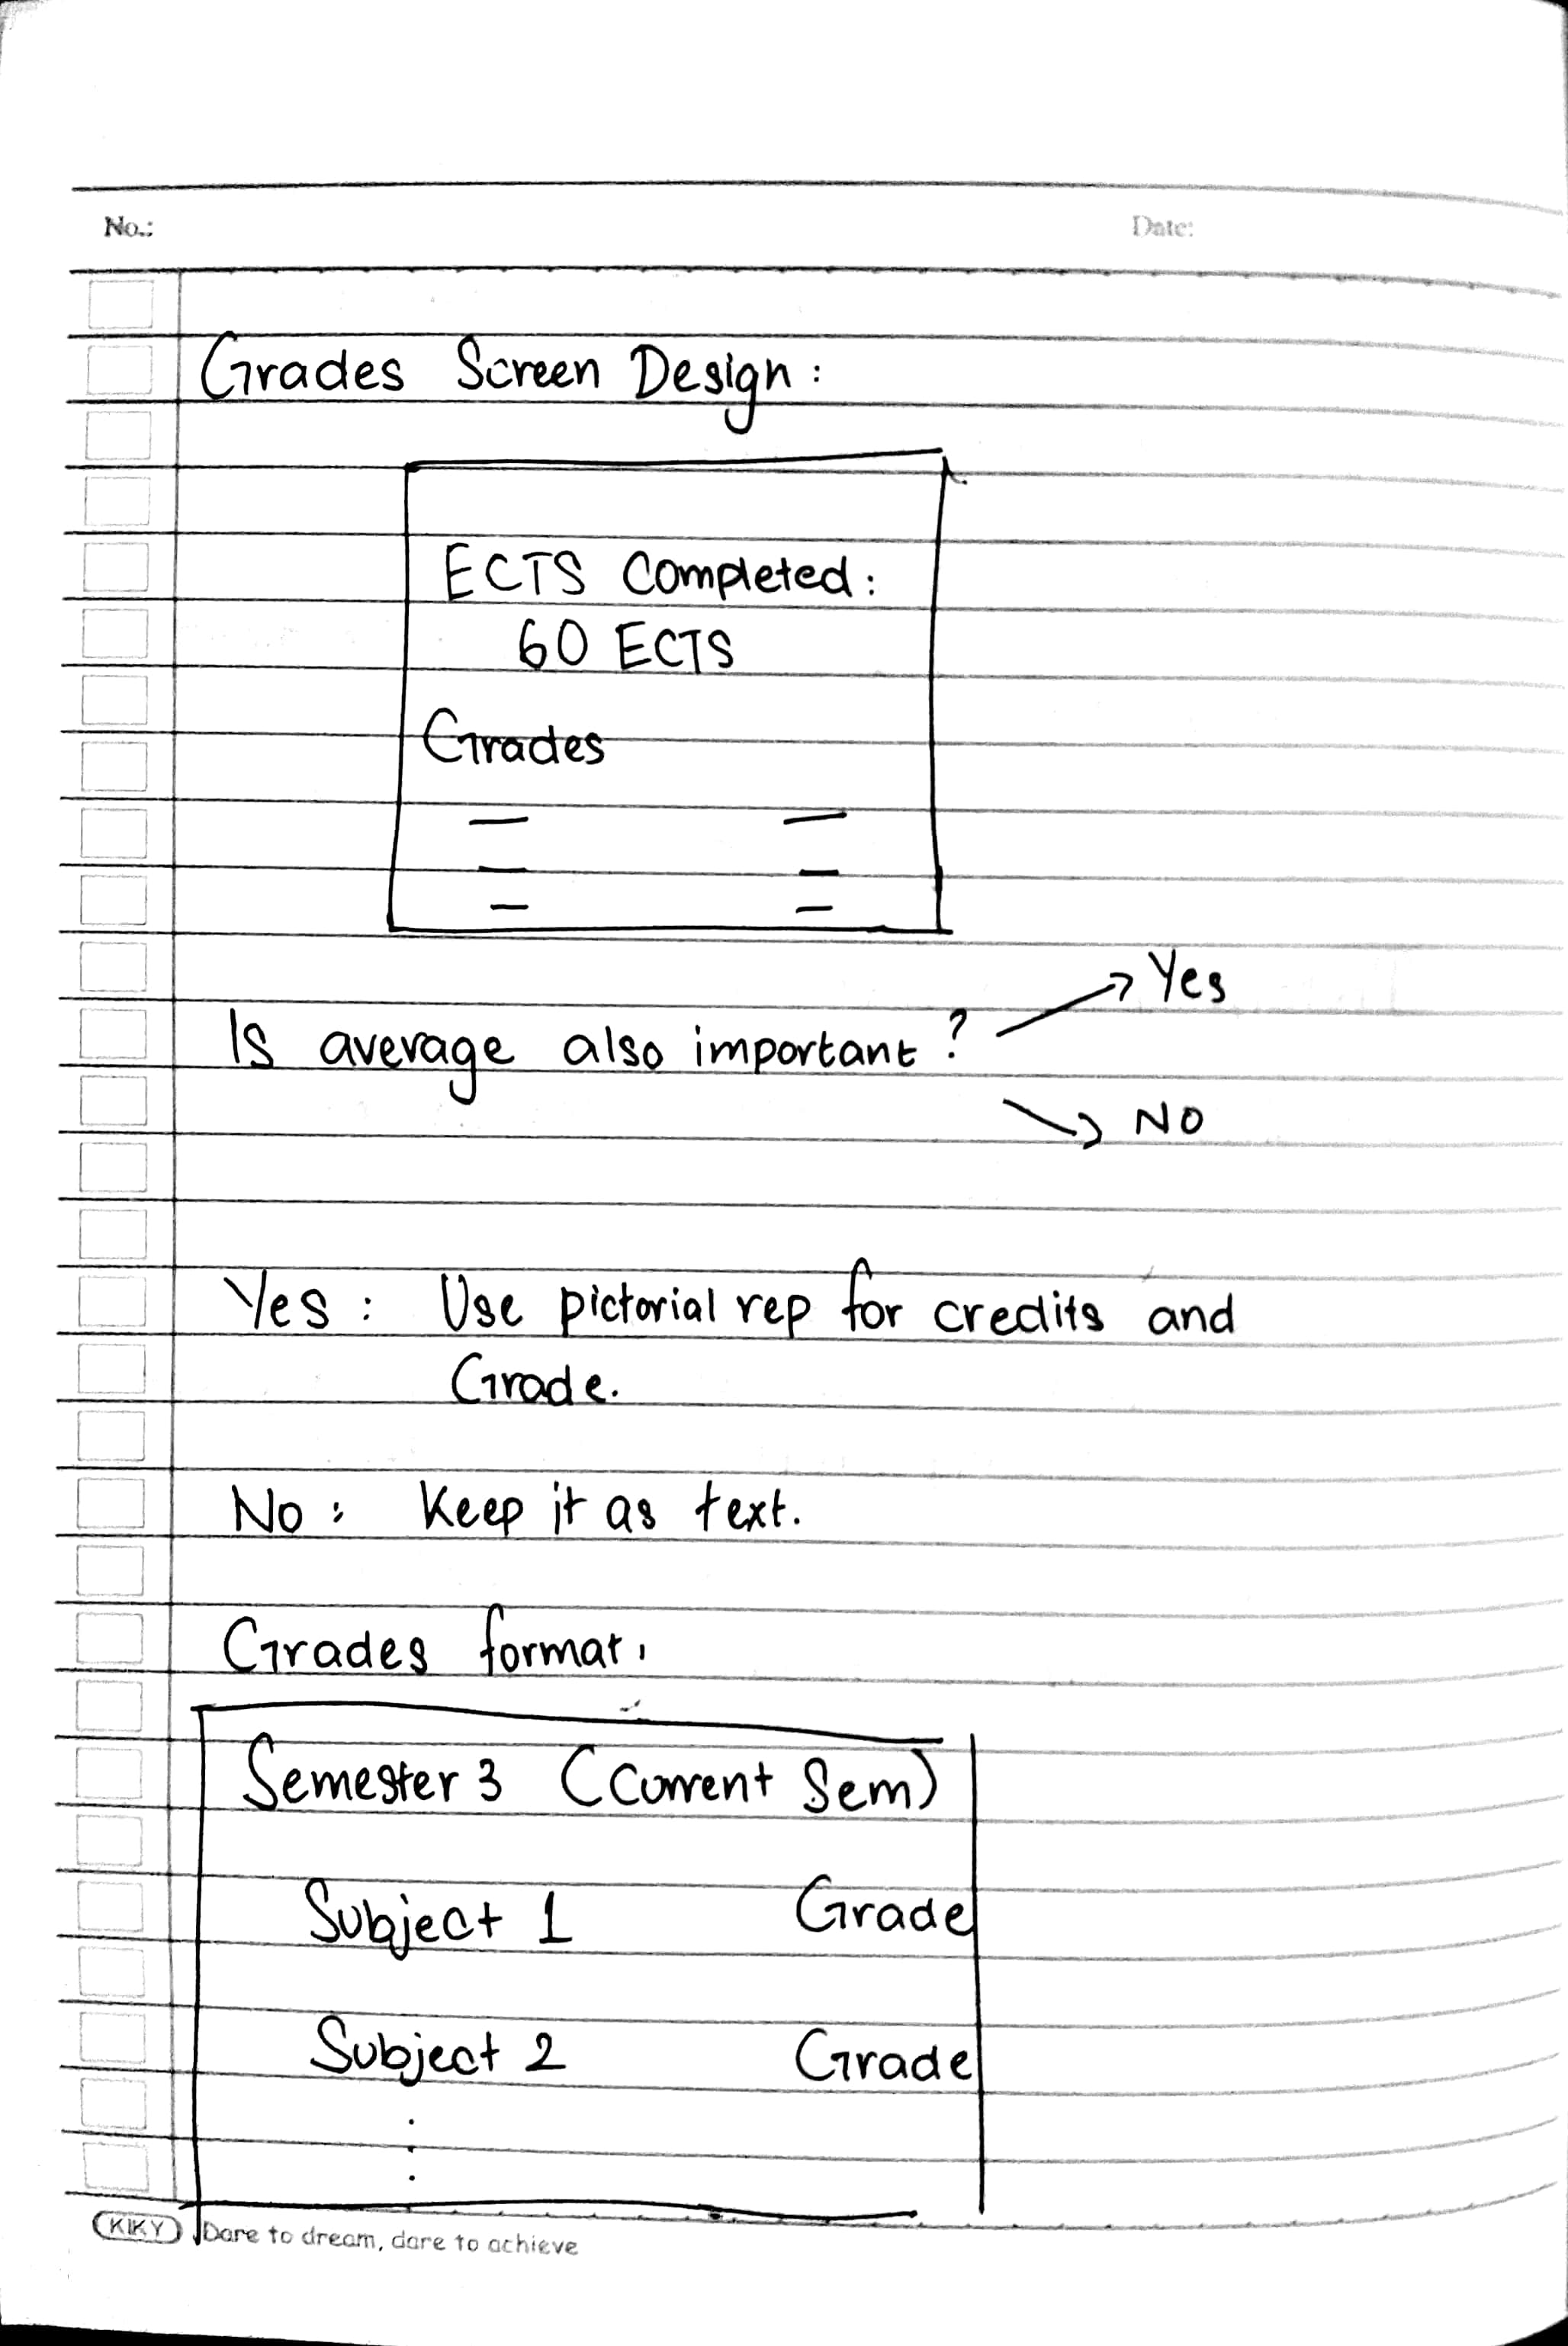 No.:
Date:
Grades Screen Design:
ECTS Completed:
60 ECTS
Grades
Yes
Is average also important?
NO
Yes: Use pictorial rep for credits and
Grade.
No: Keep it as text.
Grades format:
Semester 3 (Current Sem)
Subject 1 Grade
Subject 2 Grade
KIKY Dare to dream, dare to achieve